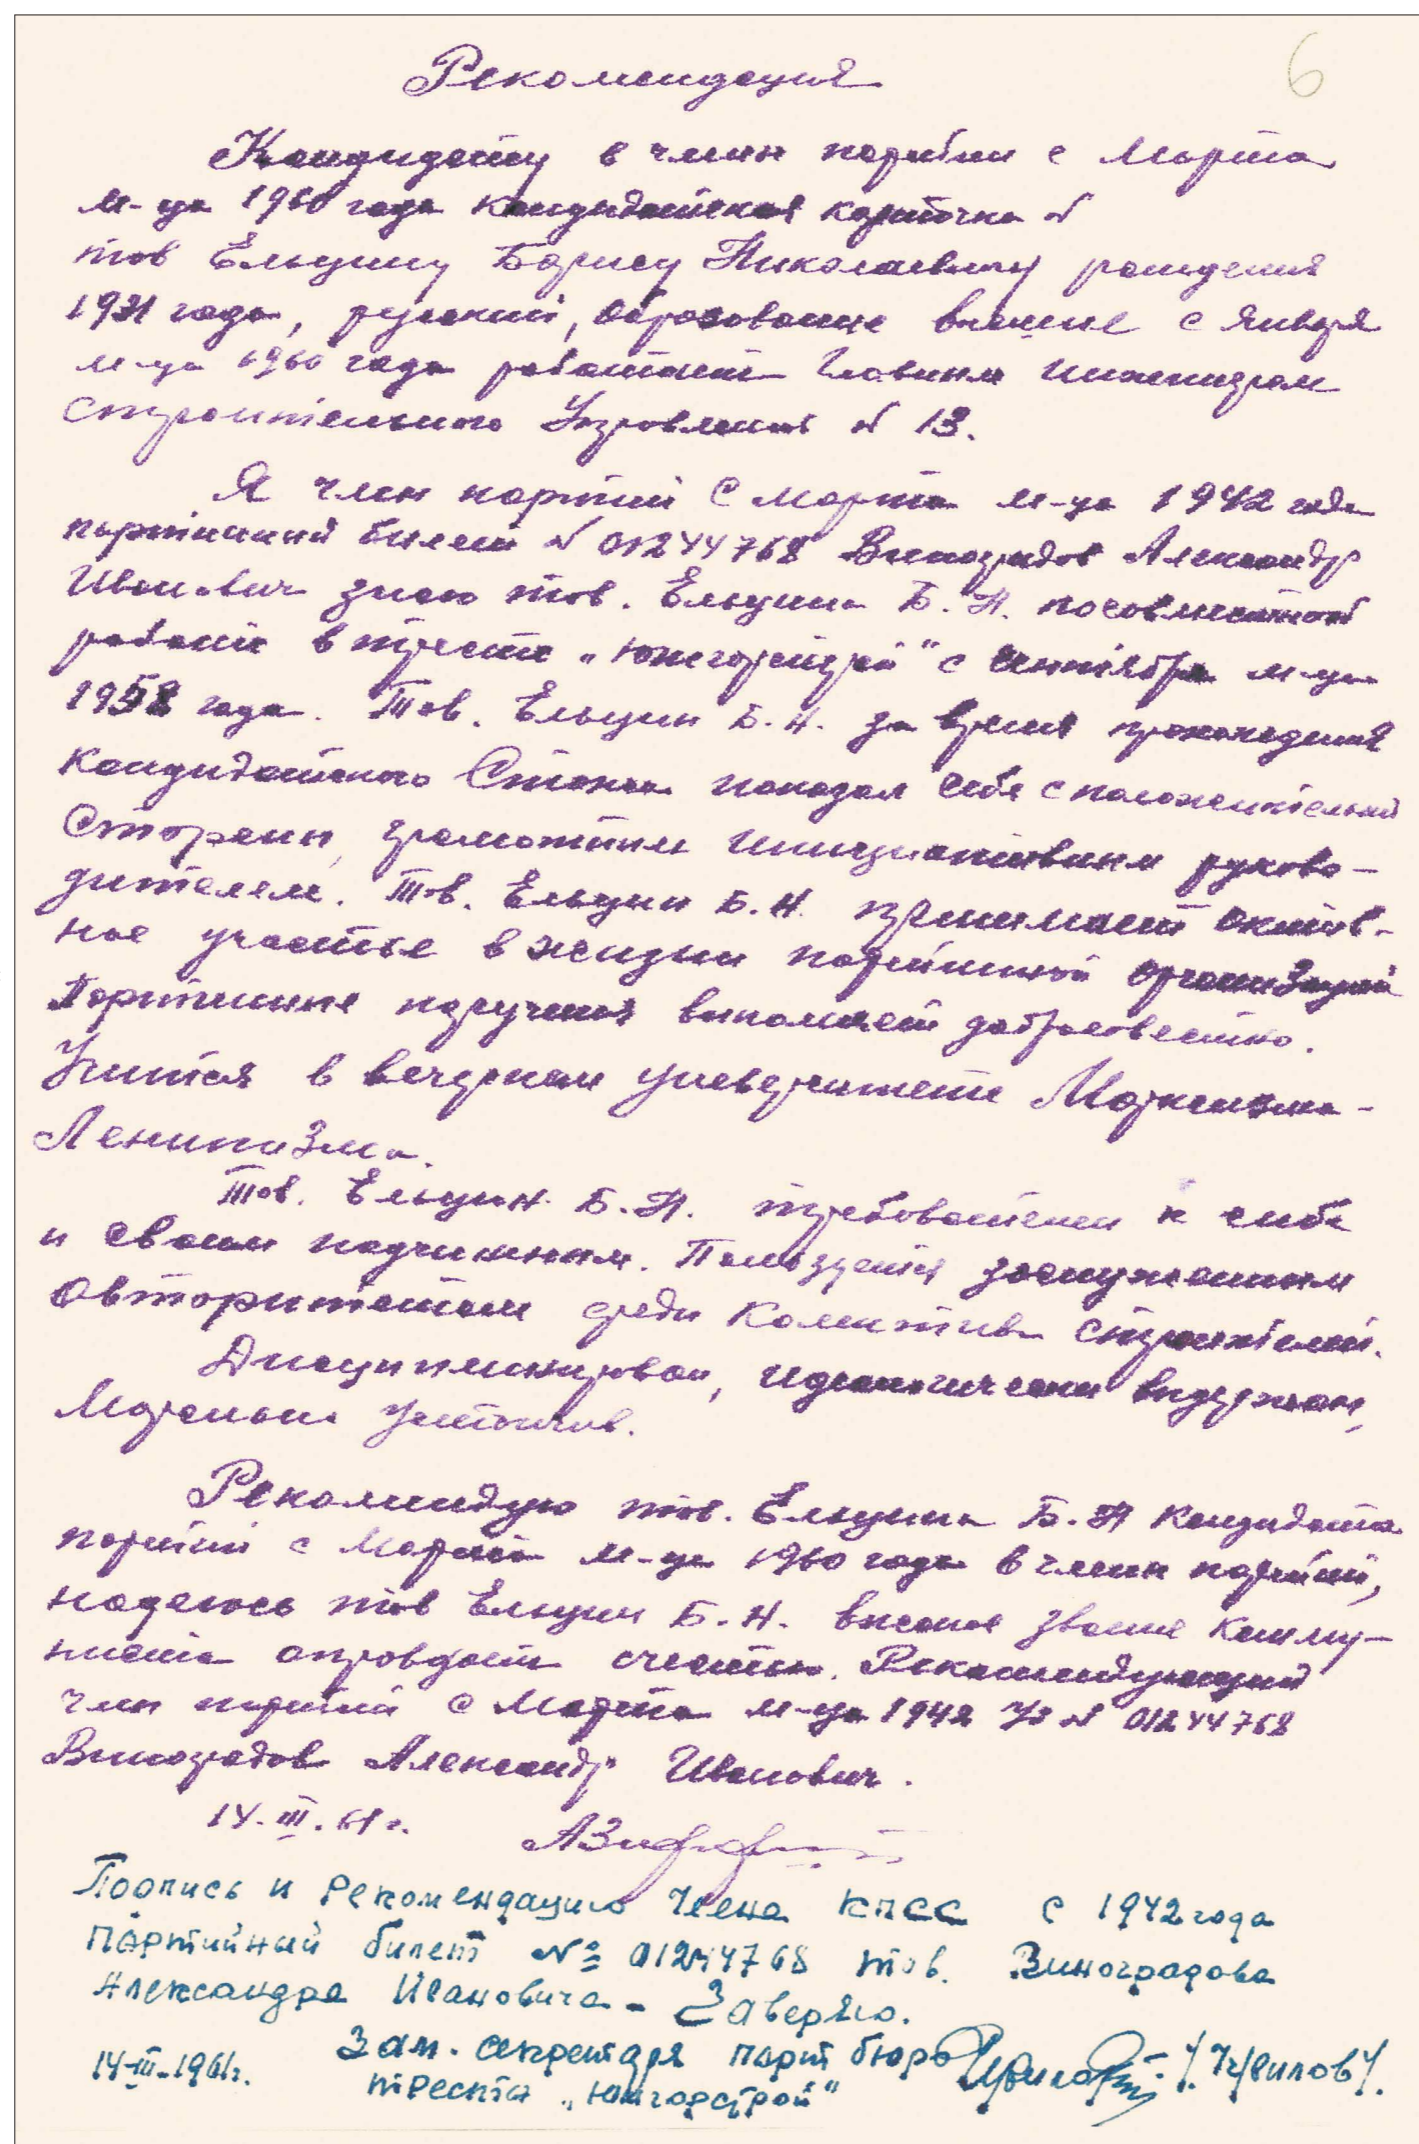 6
Рекомендация
Кандидату в члены партии с Марта
м-ца 1960 года кандидатская карточка №
тов Ельцину Борису Николаевичу рождения
1931 года, русский, образование высшее с Января
м-ца 1960 года работает Главным инженером
Строительного Управления № 13.
Я член партии с Марта м-ца 1942 года
партийный билет № 01244768 Виноградов Александр
Иванович знаю тов. Ельцина Б. Н. по совместной
работе в тресте „Южгорстрой" с Сентября м-ца
1958 года. Тов. Ельцин Б. Н. за время прохождения
Кандидатского Стажа показал себя с положительной
Стороны, грамотным инициативным руково-
дителем. Тов. Ельцин Б. Н. принимает актив-
ное участие в жизни партийной организации
Партийные поручения выполняет добросовестно.
Учится в вечернем университете Марксизма-
Ленинизма.
Тов. Ельцин Б. Н. требователен к себе
и своим подчиненным. Пользуется заслуженным
Авторитетом среди Коллектива Строителей.
Дисциплинирован, идеологически выдержан,
Морально устойчив.
Рекомендую тов. Ельцина Б. Н Кандидата
партии с Марта м-ца 1960 года в члены партии,
надеюсь тов Ельцин Б. Н. высокое звание Комму-
ниста оправдает с честью. Рекомендующий
Член партии с Марта м-ца 1942 № 01244768
Виноградов Александр Иванович.
14. III. 61 г.
Подпись и рекомендацию Члена КПСС с 1942 года
партийный билет № 01244768 тов. Виноградова
Александра Ивановича - Заверяю.
Зам. секретаря парт бюро
14-III-1961г. треста „Южгорстрой"